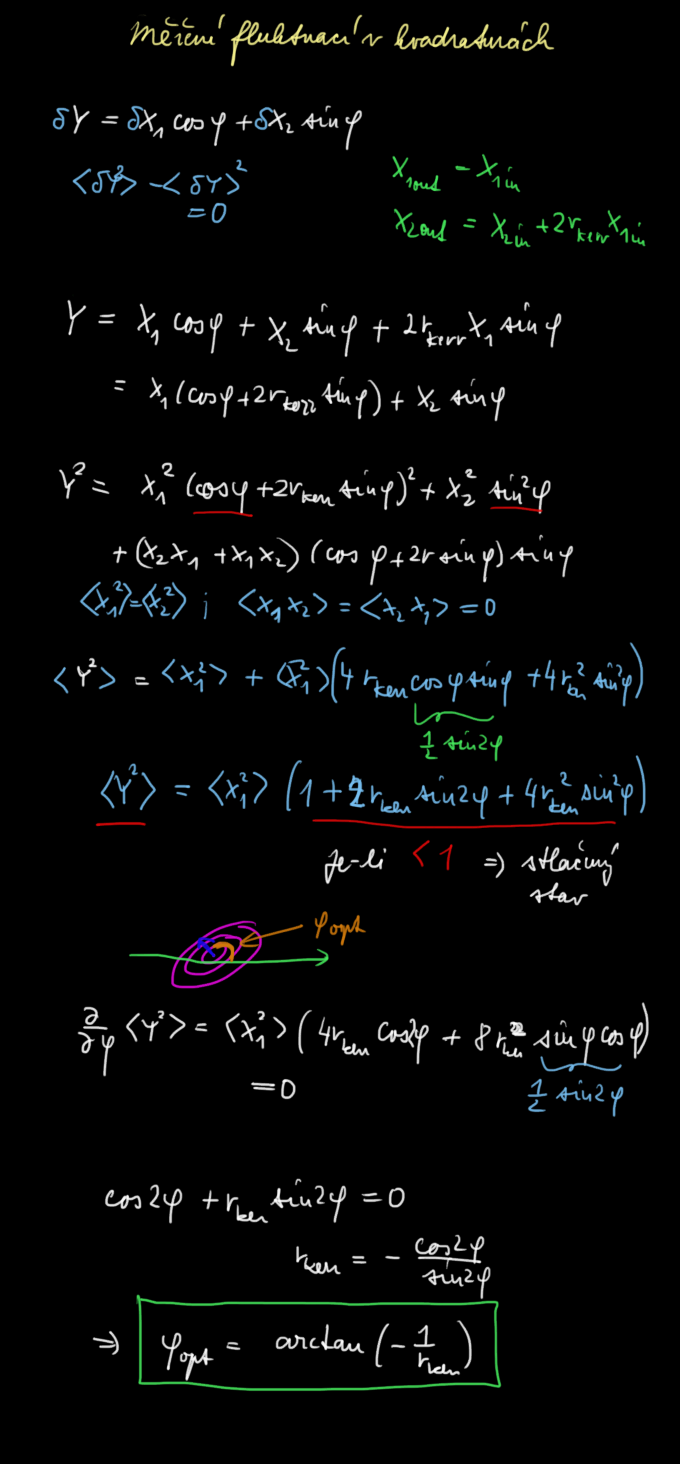 Měření fluktuací v kvadraturách
δY = δX₁ cosφ + δX₂ sinφ
⟨δY²⟩ - ⟨δY⟩² = 0
X₁out = X₁in
X₂out = X₂in + 2r_kerr X₁in
Y = X₁ cosφ + X₂ sinφ + 2r_kerr X₁ sinφ
= X₁ (cosφ + 2r_kerr sinφ) + X₂ sinφ
Y² = X₁² (cosφ + 2r_kerr sinφ)² + X₂² sin²φ
+ (X₂X₁ + X₁X₂) (cos φ + 2r sinφ) sinφ
⟨X₁²⟩=⟨X₂²⟩ ; ⟨X₁X₂⟩ = ⟨X₂X₁⟩ = 0
⟨Y²⟩ = ⟨X₁²⟩ + ⟨X₁²⟩(4 r_kerr cosφ sinφ + 4r_kerr² sin²φ)
½ sin2φ
⟨Y²⟩ = ⟨X₁²⟩ (1 + 2r_kerr sin2φ + 4r_kerr² sin²φ)
Je-li < 1 ⇒ stlačený
stav
φopt
∂/∂φ ⟨Y²⟩ = ⟨X₁²⟩ (4r_kerr cos2φ + 8r_kerr² sinφ cosφ)
= 0
½ sin2φ
cos2φ + r_kerr sin2φ = 0
r_kerr = - cos2φ/sin2φ
⇒ φopt = arctan (-1/r_kerr)